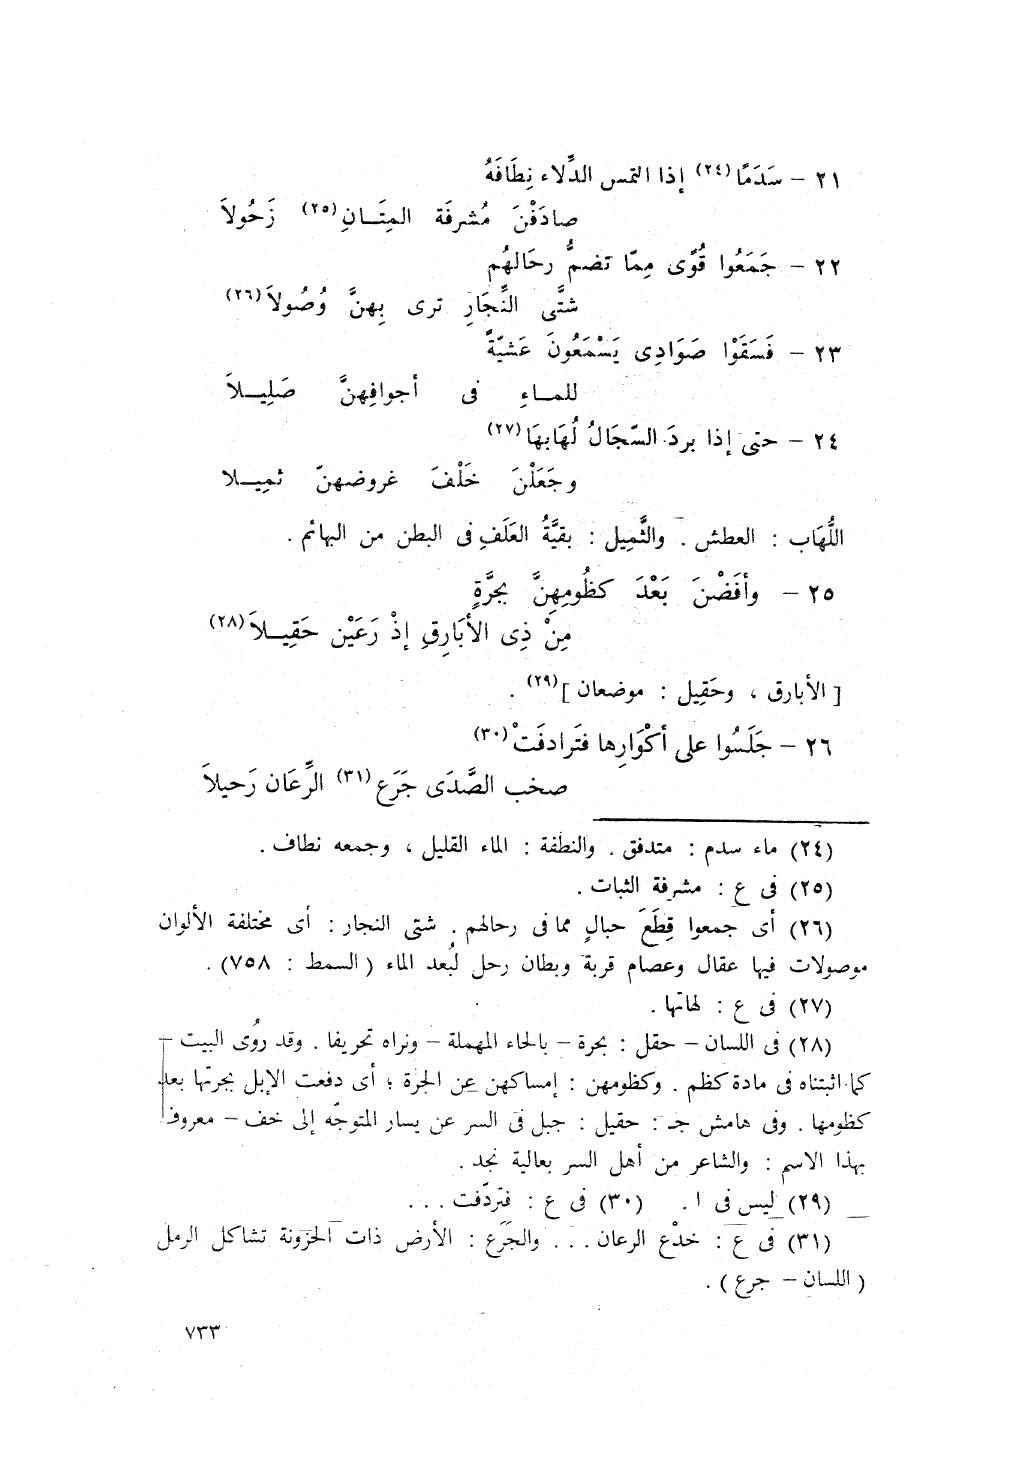 ٢١ – سَدَمًا(٢٤) إذا التمس الدِّلاء نِطَافَهُ
صادَفْنَ مُشرفَة المِتَـانِ(٢٥) زَحُولاَ
٢٢ – جَمَعُوا قُوًى مِمّا تضمُّ رحَالهُم
شتَّى النِّجَارِ ترى بِهنَّ وُصُولاَ(٢٦)
٢٣ – فَسَقَوْا صَوَادِى يَسْمَعُونَ عَشيّةً
للمـاءِ فى أجوافِهنَّ صَلِيـلاَ
٢٤ – حتى إذا بردَ السّجَالُ لُهَابهَا(٢٧)
وجَعَلْنَ خَلْفَ غروضهنّ ثمِيـلا
اللُّهَاب : العطش . والثَّمِيل : بقيَّةُ العَلَفِ فى البطن من البهائم .
٢٥ – وأفَضْنَ بَعْدَ كظُومِهِنَّ بجرَّةٍ
مِنْ ذِى الأبَارِقِ إذْ رَعَيْن حَقِيـلاَ(٢٨)
[ الأبارق ، وحَقِيل : موضعان ](٢٩) .
٢٦ – جَلَسُوا على أكْوَارِها فتَرادفَتْ(٣٠)
صخب الصَّدَى جَرَع(٣١) الرِّعَان رَحيلاَ
(٢٤) ماء سدم : متدفق . والنطفة : الماء القليل ، وجمعه نطاف .
(٢٥) فى ع : مشرفة الثبات .
(٢٦) أى جمعوا قِطَعَ حبالٍ مما فى رحالهم . شتى النجار : أى مختلفة الألوان
موصولات فيها عقال وعصام قربة وبطان رحل لبُعد الماء ( السمط : ٧٥٨) .
(٢٧) فى ع : لهاتها .
(٢٨) فى اللسان – حقل : بحرة – بالحاء المهملة – ونراه تحريفا . وقد روُى البيت –
كما اثبتناه فى مادة كظم . وكظومهن : إمساكهن عن الجرة ؛ أى دفعت الإبل بجرتها بعد
كظومها . وفى هامش جـ : حقيل : جبل فى السر عن يسار المتوجّه إلى خف – معروف
بهذا الاسم : والشاعر من أهل السر بعالية نجد .
(٢٩) ليس فى ا . (٣٠) فى ع : فتردّفت . . .
(٣١) فى ع : خدْع الرعان . . . والجَرَع : الأرض ذات الحزونة تشاكل الرمل
( اللسان – جرع ) .
٧٣٣